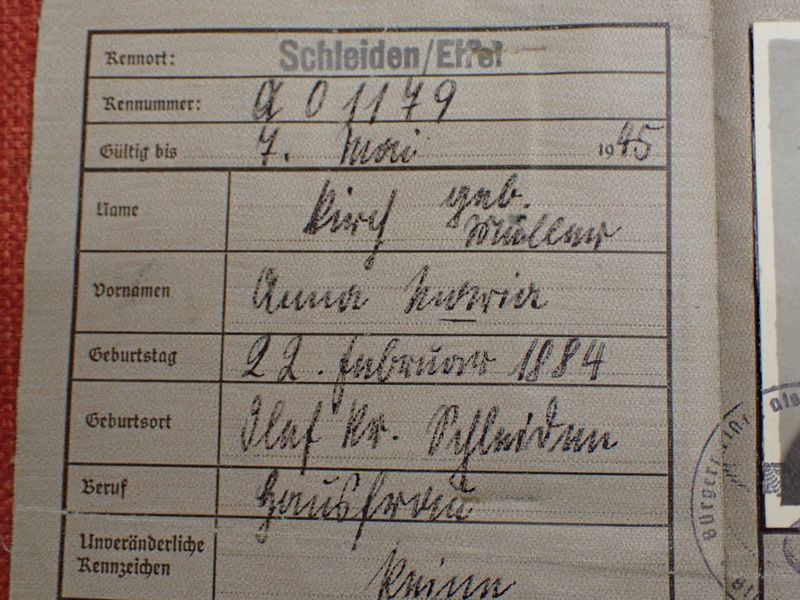 Kennort: Schleiden/Eifel
Kennummer: A 01179
Gültig bis 7. Mai 1945
Name Kirch geb.
Müller
Vornamen Anna Maria
Geburtstag 22. Februar 1884
Geburtsort Olef Kr. Schleiden
Beruf Hausfrau
Unveränderliche
Kennzeichen Keine
als
Bürger